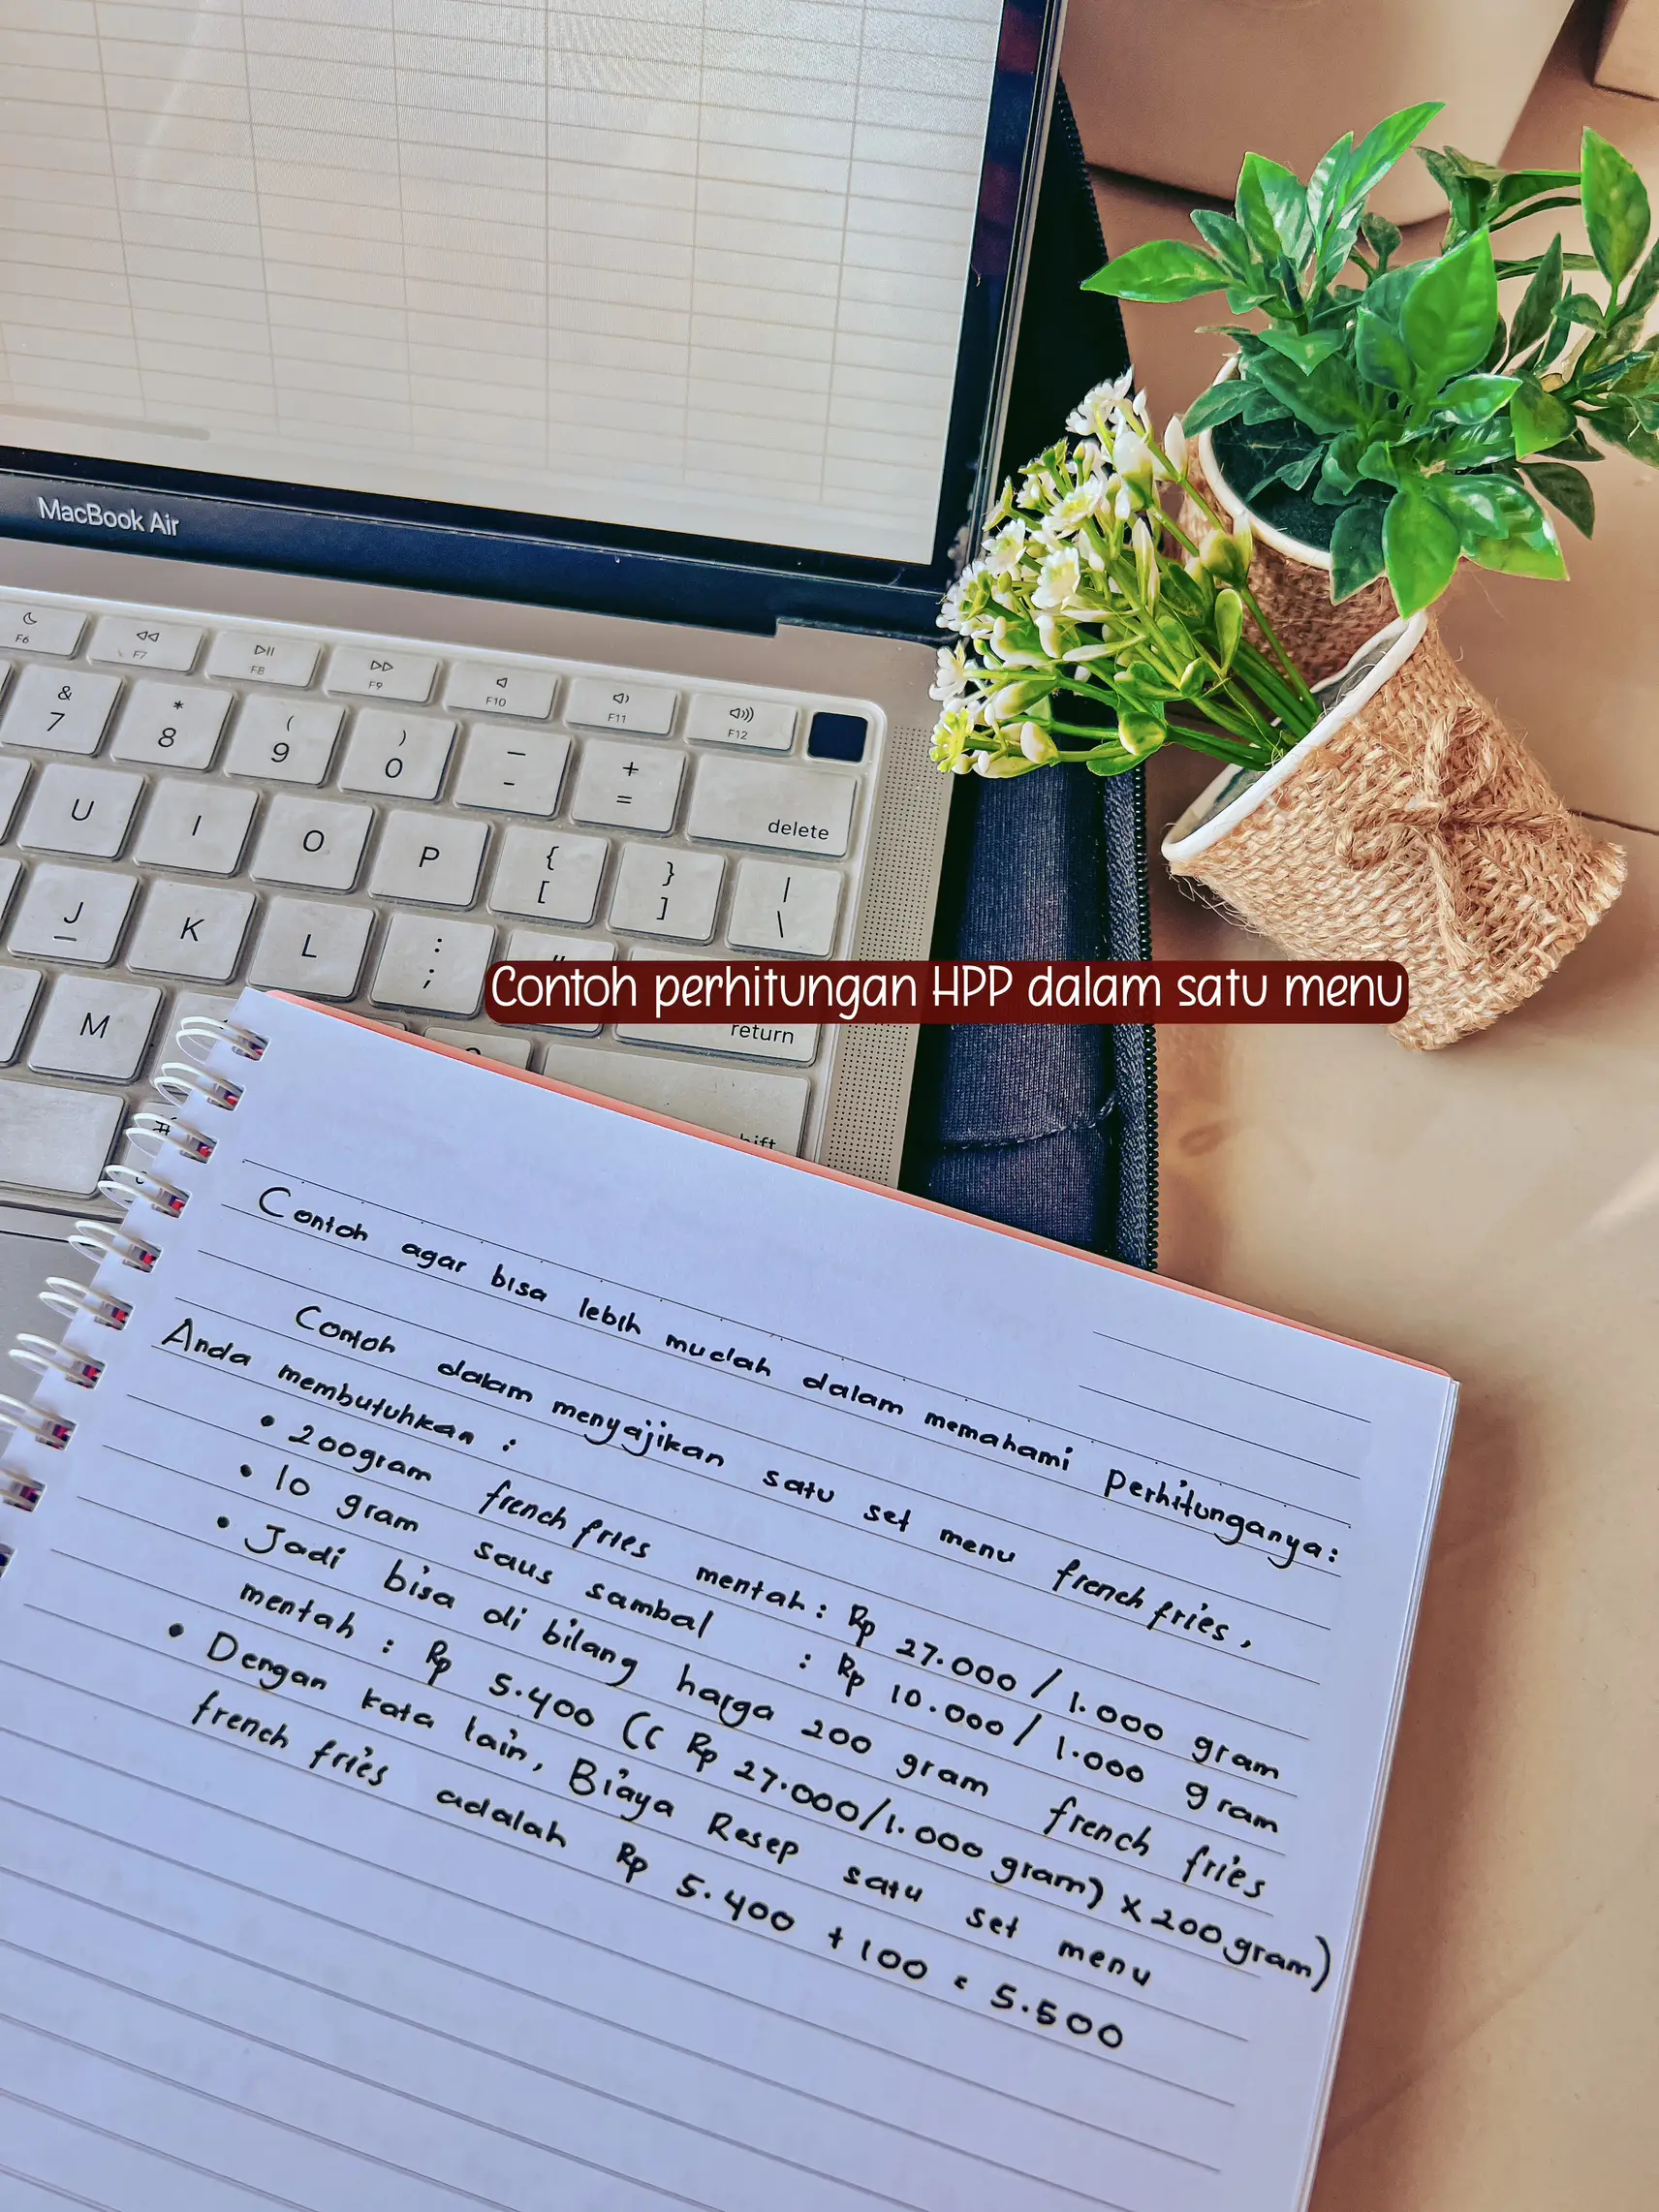 MacBook Air
F6 F7 F8 F9 F10 F11 F12
& 7 * 8 ( 9 ) 0 — - + =
delete
U I O P { [ } ] | \
J K L : ; "
return
M
Contoh perhitungan HPP dalam satu menu
Contoh agar bisa lebih mudah dalam memahami perhitunganya:
Contoh dalam menyajikan satu set menu french fries,
Anda membutuhkan :
• 200gram french fries mentah: Rp 27.000 / 1.000 gram
• 10 gram saus sambal : Rp 10.000 / 1.000 gram
• Jadi bisa di bilang harga 200 gram french fries
mentah : Rp 5.400 (( Rp 27.000/1.000 gram) x 200 gram)
• Dengan kata lain, Biaya Resep satu set menu
french fries adalah Rp 5.400 + 100 = 5.500